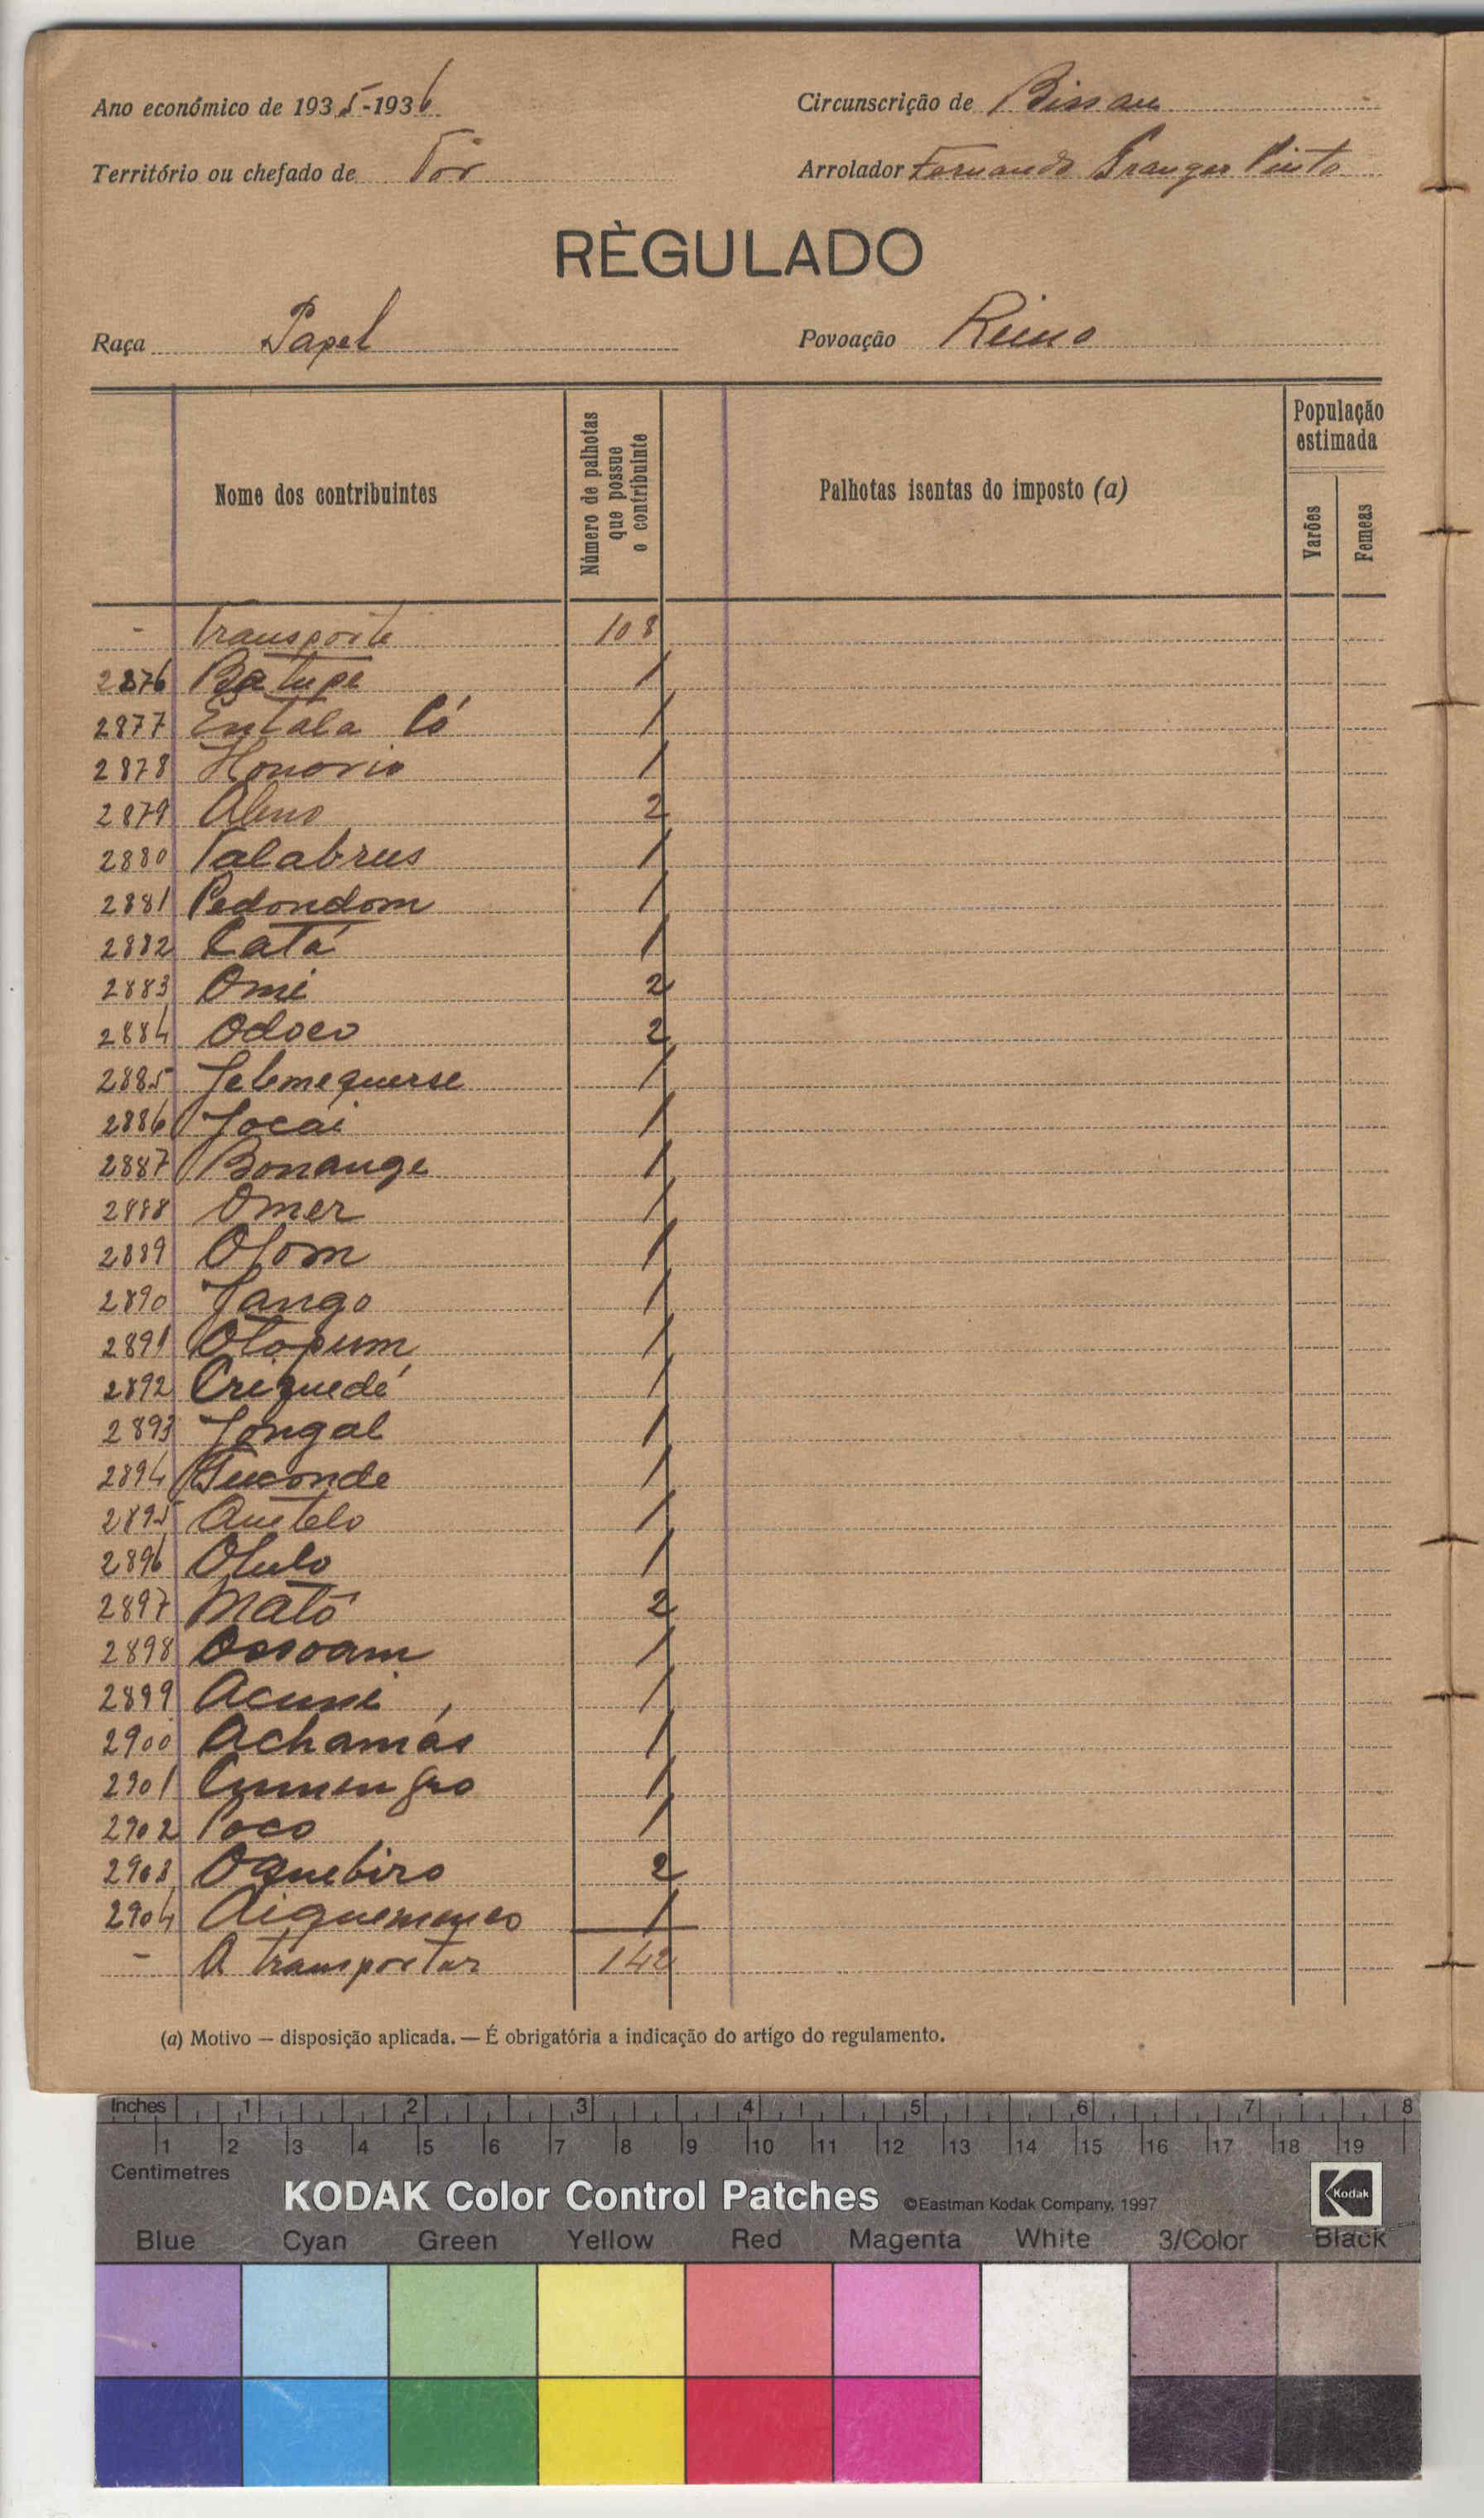 Ano económico de 1935-1936 Circunscrição de Bissau
Território ou chefado de Tôr Arrolador Fernando Granger Pinto
RÈGULADO
Raça Papel Povoação Reino
Nome dos contribuintes
Número de palhotas que possue o contribuinte
Palhotas isentas do imposto (a)
População estimada
Varões
Femeas
- Transporte 108
2876 Batupe 1
2877 Entala Có 1
2878 Honorio 1
2879 2
2880 Talabrus 1
2881 Pedondom 1
2882 Catá 1
2883 Omi 2
2884 Odoco 2
2885 1
2886 Jocai 1
2887 Bonange 1
2888 Omer 1
2889 1
2890 Jango 1
2891 Otopum 1
2892 Criquedé 1
2893 Jongal 1
2894 1
2895 1
2896 1
2897 Mató 2
2898 Ossoam 1
2899 1
2900 Achamás 1
2901 1
2902 Poco 1
2903 Oquebiro 2
2904 1
- A transportar 142
(a) Motivo — disposição aplicada. — É obrigatória a indicação do artigo do regulamento.
Inches 1 2 3 4 5 6 7 8
1 2 3 4 5 6 7 8 9 10 11 12 13 14 15 16 17 18 19
Centimetres
KODAK Color Control Patches ©Eastman Kodak Company, 1997 Kodak
Blue Cyan Green Yellow Red Magenta White 3/Color Black